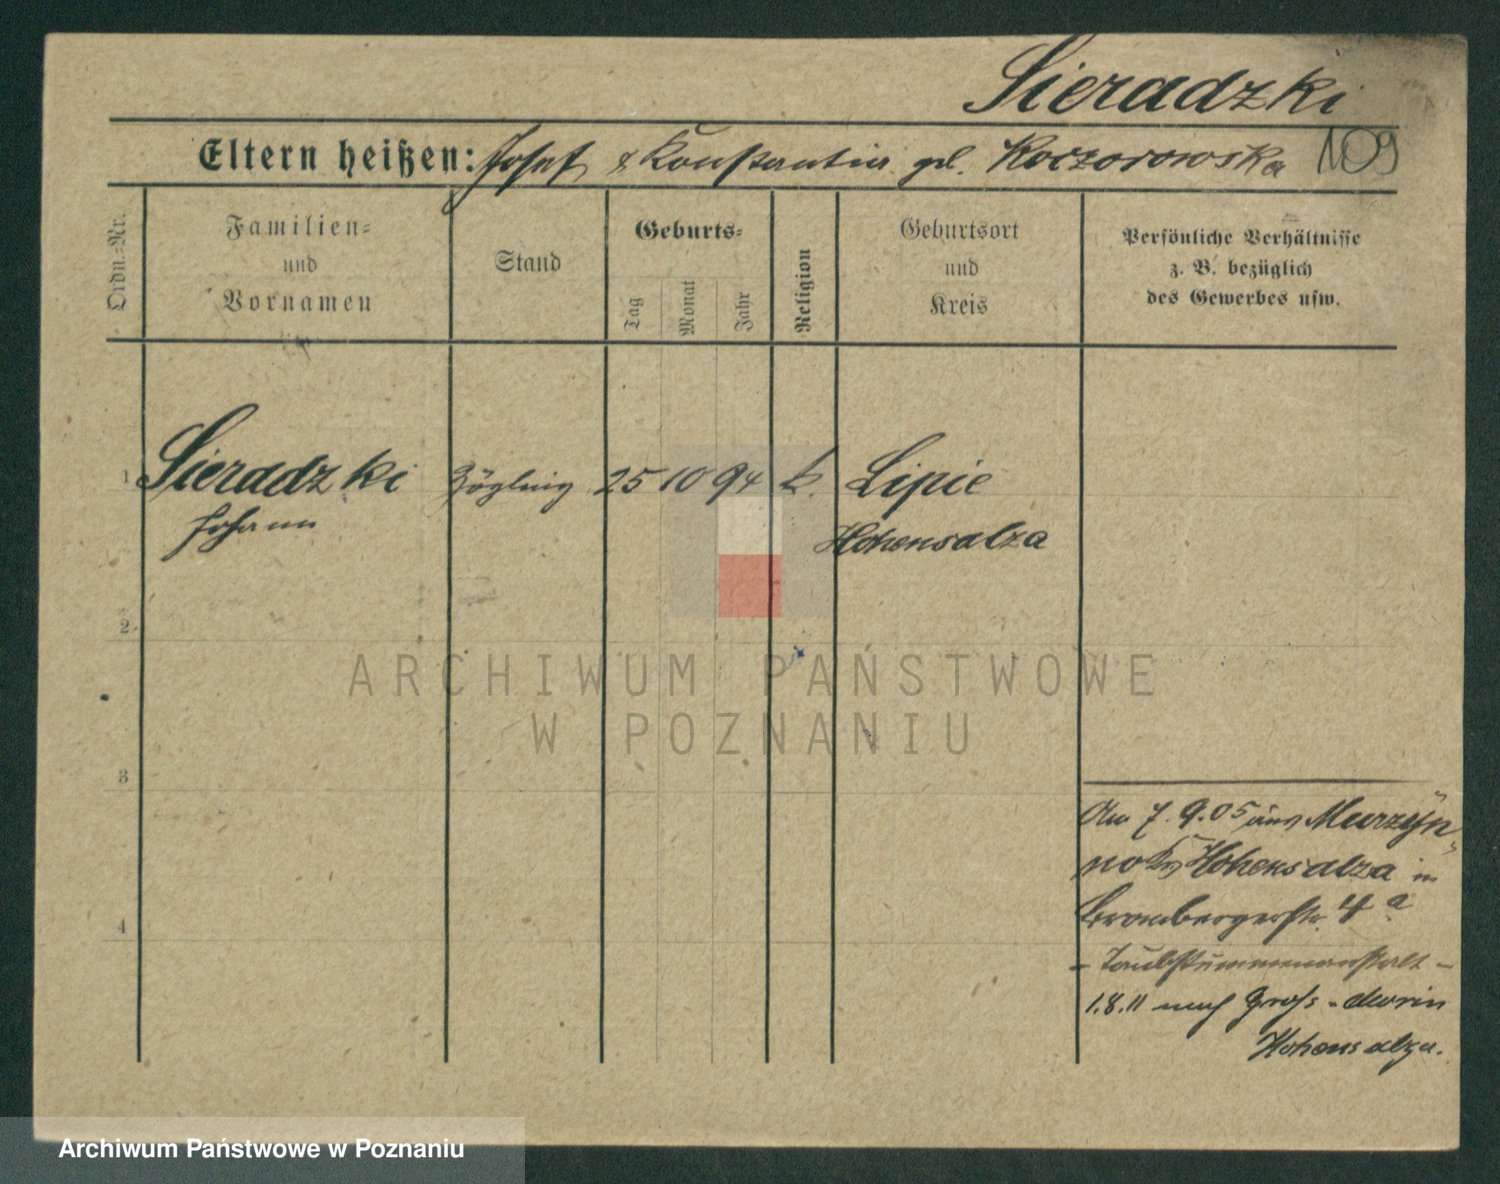 Sieradzki
Eltern heißen: Josef & Konstantia gb. Koczorowska 109
Ordn.-Nr.
Familien-
und
Vornamen
Stand
Geburts-
Tag
Monat
Jahr
Religion
Geburtsort
und
Kreis
Persönliche Verhältnisse
z. B. bezüglich
des Gewerbes usw.
1 Sieradzki Zögling 25 10 94 k. Lipie
Johann Hohensalza
2
3
4
Am 7.9.05 aus Murzyn-
no Krs Hohensalza in
Brombergerstr. 4a
- Taubstummenanstalt -
1.8.11 nach Gross-Morin
Hohensalza.
ARCHIWUM PAŃSTWOWE
W POZNANIU
Archiwum Państwowe w Poznaniu